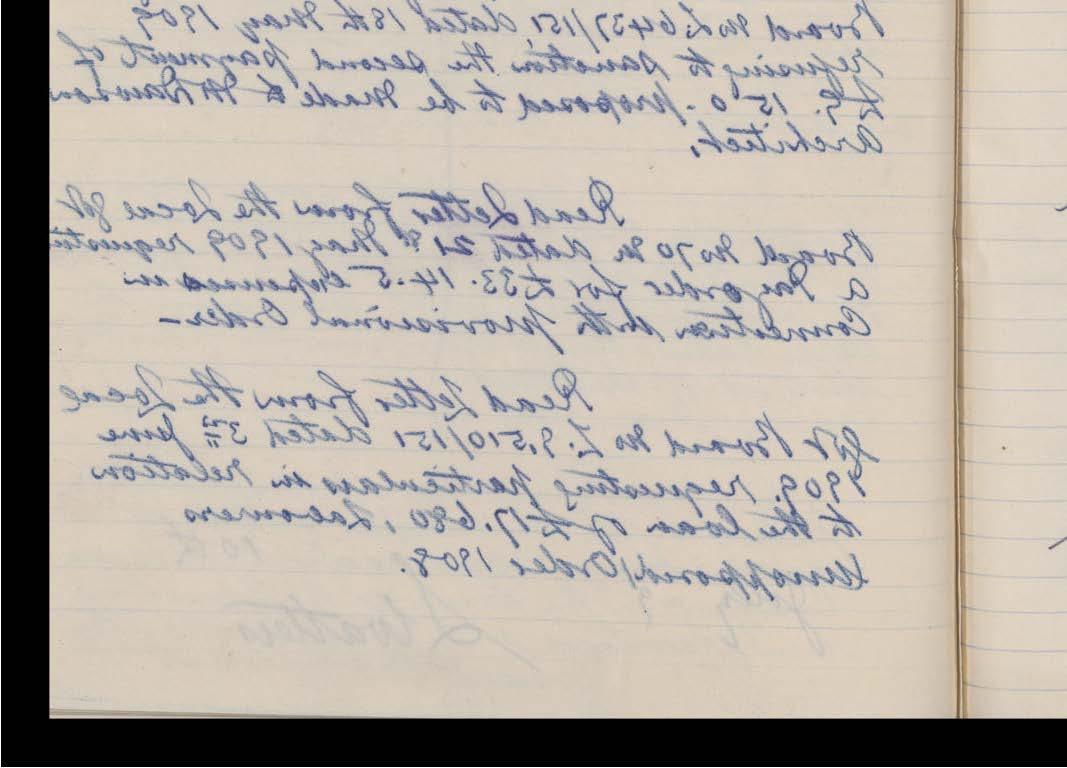 Board No L.6437/151, dated 18th May 1909
refusing to sanction the second payment of
£9. 15. 0. proposed to be made to Mr Dawson
Architect.
Read Letter from the Local Govt
Board No 70 M dated 21st May 1909 requesting
a Pay order for £33. 14. 5 expenses in
Connection with Provisional Order—
Read Letter from the Local
Govt Board No L. 9,510/151 dated 3rd June
1909. requesting particulars in relation
to the loan of £17.680, Labourers
Unopposed Order 1908.
10th
July